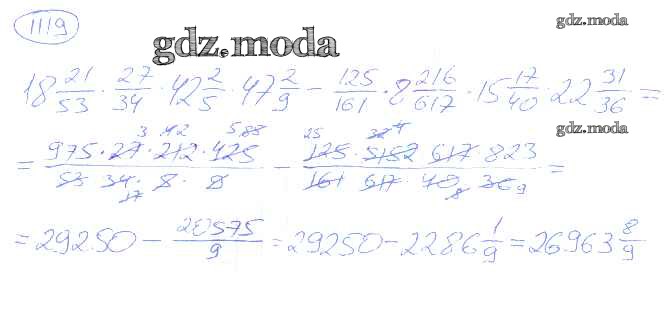 1119
gdz.moda
gdz.moda
18 21/53 · 27/34 · 42 2/5 · 47 2/9 - 125/161 · 8 216/617 · 15 17/40 · 22 31/36 =
gdz.moda
= 975 · 27 · 212 · 425 / 53 34 · 5 · 9 - 125 · 5152 617 823 / 161 617 40 36 =
= 29250 - 20575/9 = 29250 - 2286 1/9 = 26963 8/9